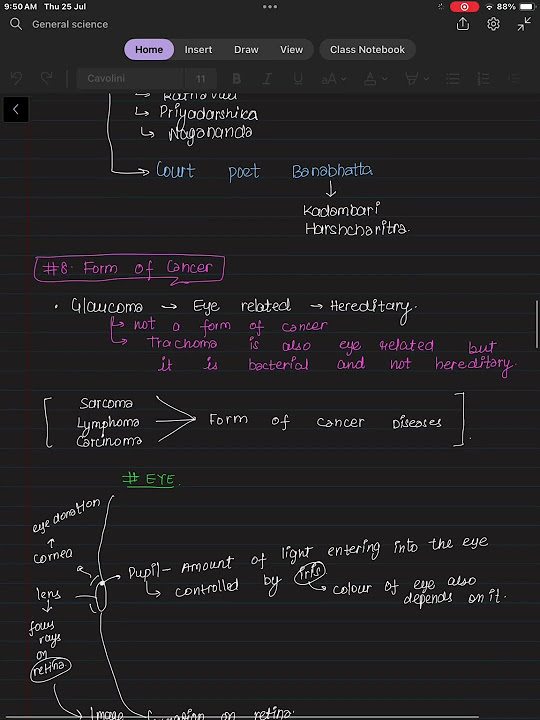 9:50 AM Thu 25 Jul
88%
General science
Home Insert Draw View Class Notebook
Cavolini 11 B I U
Ratnavali
Priyadarshika
Nagananda
Court poet Banabhatta
Kadambari
Harshcharitra.
#8. Form of Cancer
Glaucoma → Eye related → Hereditary.
not a form of cancer
Trachoma is also eye related but
it is bacterial and not hereditary.
Sarcoma
Lymphoma
Carcinoma
Form of cancer Diseases
# EYE.
eye donation
cornea
Pupil - Amount of light entering into the eye
controlled by iris
colour of eye also
depends on it.
lens
rays
on
retina.
Image formation on retina.